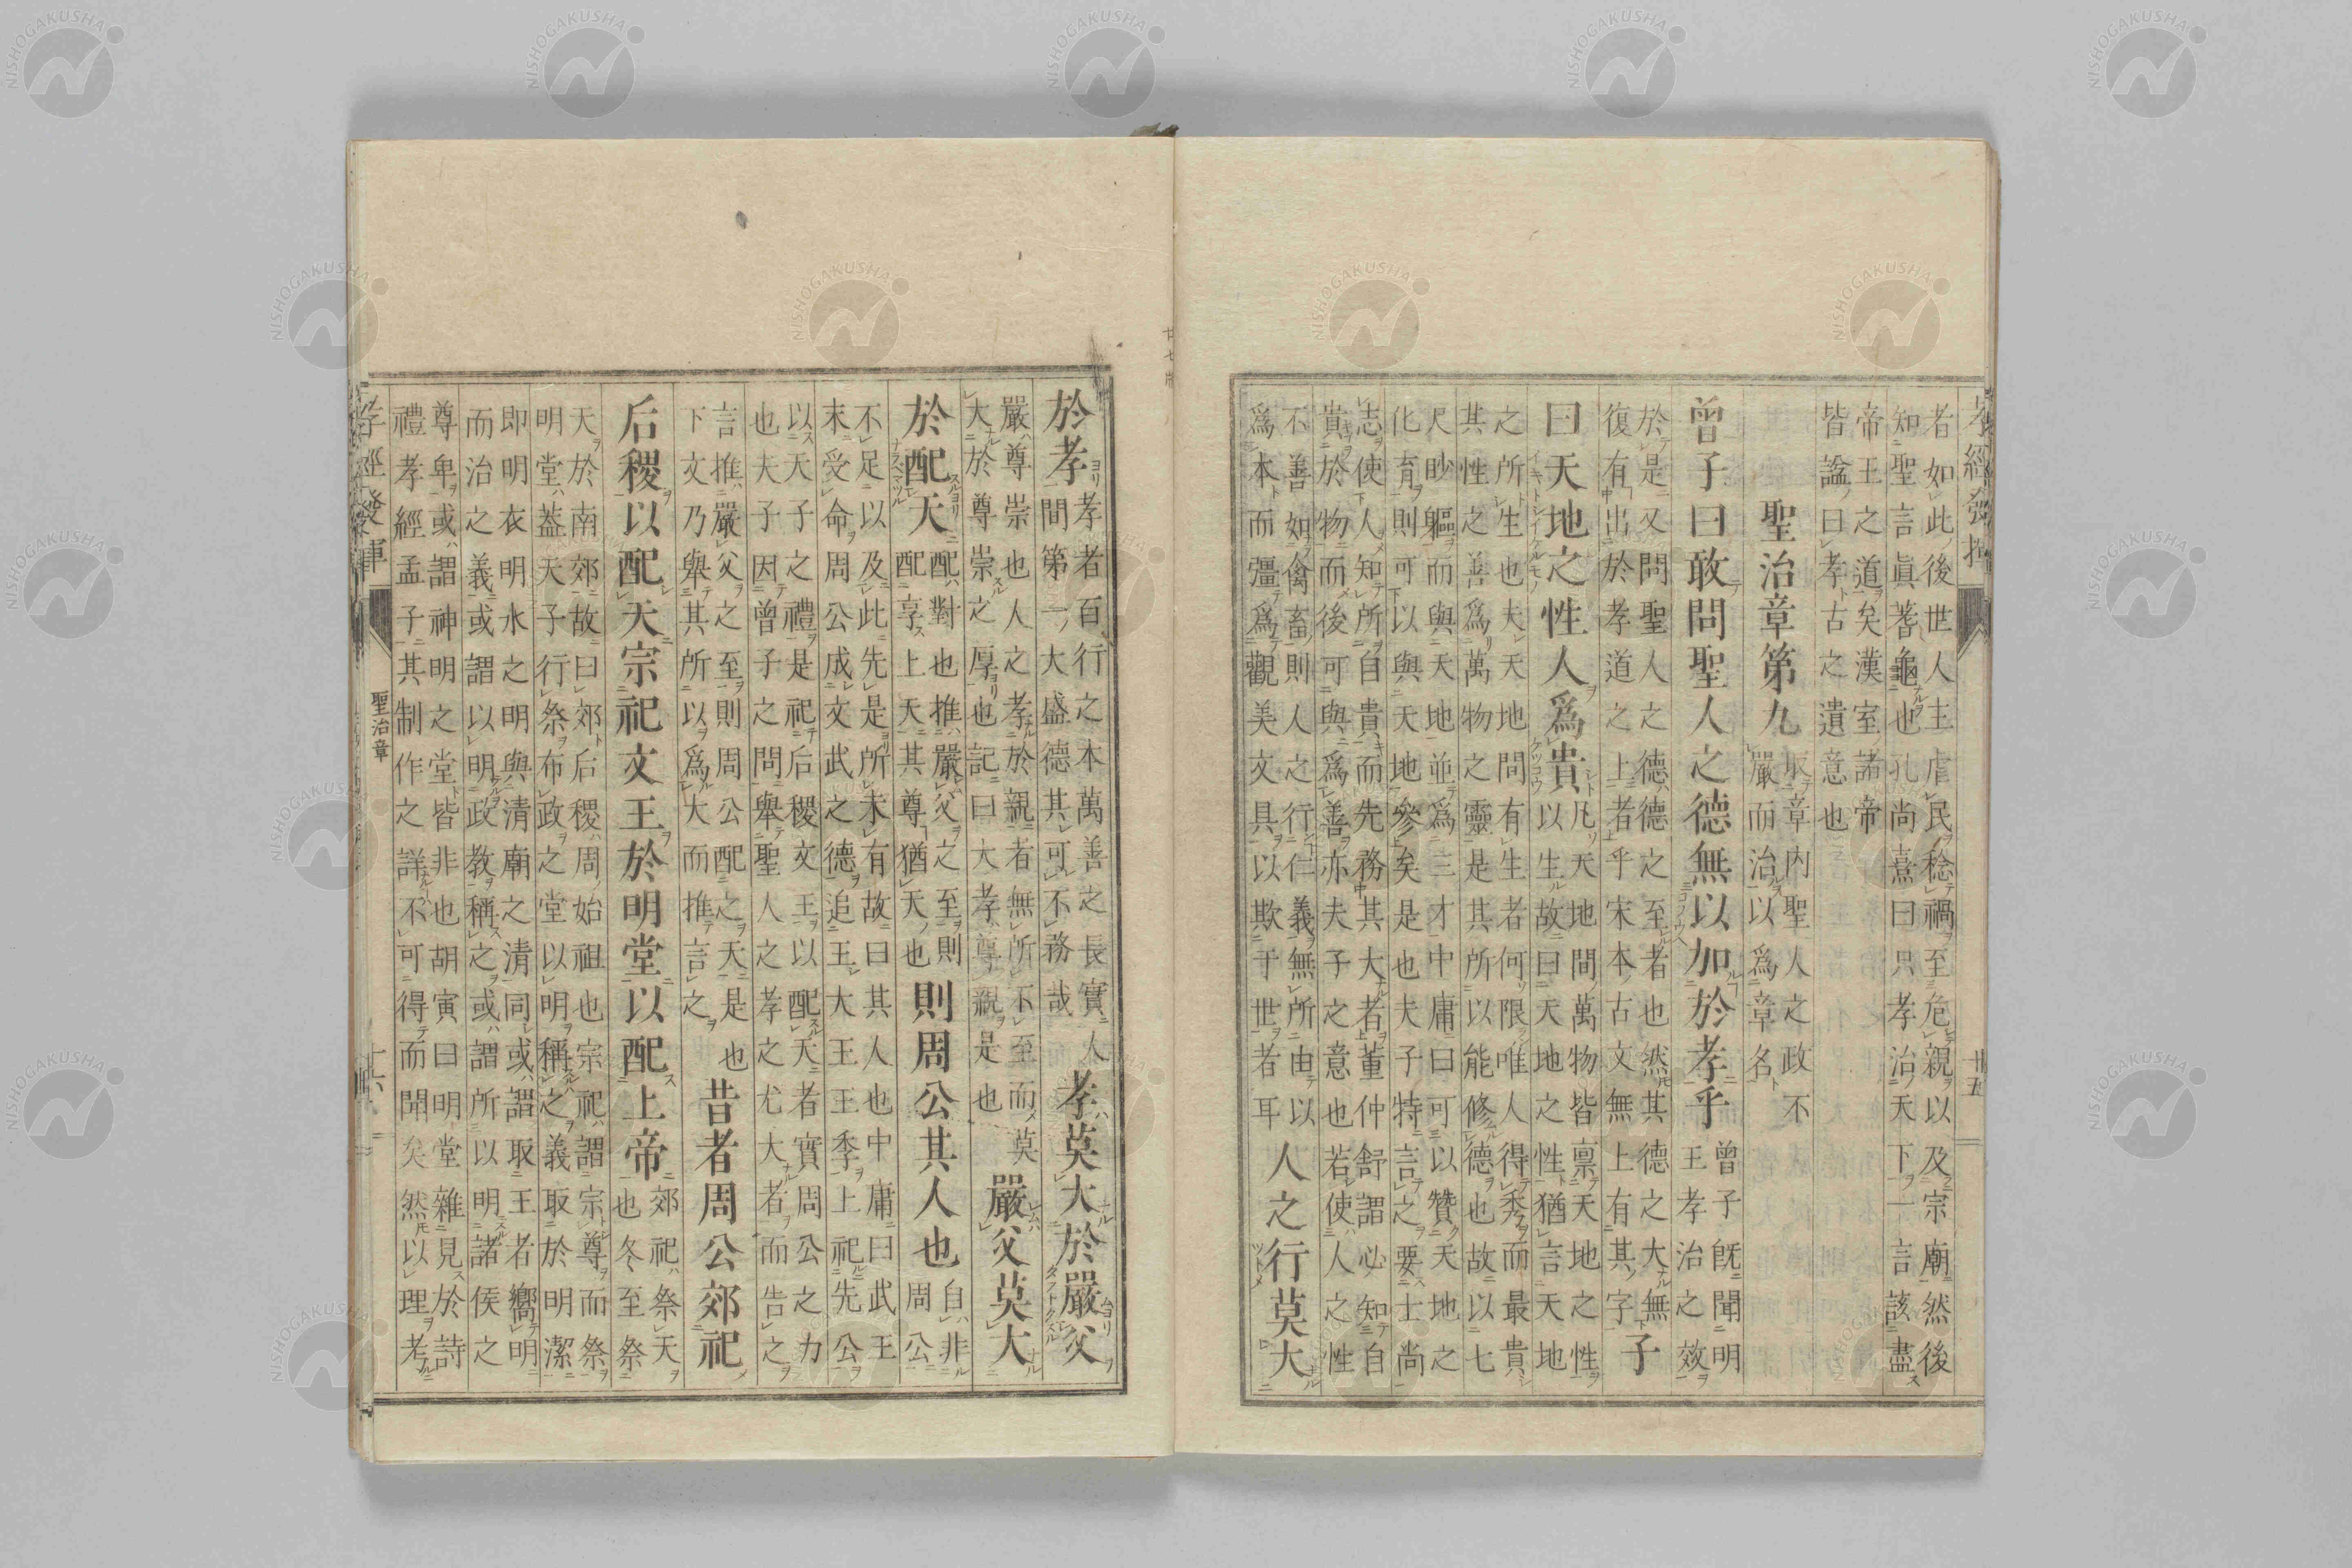 者如此後世人主虐民稔禍至危親以及宗廟然後
知聖言眞蓍龜也孔尚熹曰只孝治天下一言該盡
帝王之道矣漢室諸帝
皆諡曰孝古之遺意也
聖治章第九
取章内聖人之政不
嚴而治以爲章名
曾子曰敢問聖人之德無以加於孝乎
曾子既聞明
王孝治之效
於是又問聖人之德德之至者也然其德之大無
復有出於孝道之上者乎宋本古文無上有其字
子
曰天地之性人爲貴
凡天地間萬物皆禀天地之性
以生故曰天地之性猶言天地
之所生也夫天地間有生者何限唯人得秀而最貴
其性之善爲萬物之靈是其所以能修德也故以七
尺眇軀而與天地並爲三才中庸曰可以贊天地之
化育則可以與天地參矣是也夫子特言之要士尚
志使人知所自貴而先務其大者董仲舒謂必知自
貴於物而後可與爲善亦夫子之意也若使人之性
不善如禽畜則人之行仁義無所由以
爲本而彊爲觀美文具以欺于世者耳
人之行莫大
於孝
孝者百行之本萬善之長實人
間第一大盛德其可不務哉
孝莫大於嚴父
嚴尊崇也人之孝於親者無所不至而莫
大於尊崇之厚也記曰大孝尊親是也
嚴父莫大
於配天
配對也推嚴父之至則
配享上天其尊猶天也
則周公其人也
自非
周公
不足以及此先是所未有故曰其人也中庸曰武王
末受命周公成文武之德追王大王王季上祀先公
以天子之禮是祀后稷文王以配天者實周公之力
也夫子因曾子之問舉聖人之孝之尤大者而告之
言推嚴父之至則周公配之天是也
下文乃舉其所以爲大而推言之
昔者周公郊祀
后稷以配天宗祀文王於明堂以配上帝
郊祀祭天
也冬至祭
天於南郊故曰郊后稷周始祖也宗祀謂宗尊而祭
明堂蓋天子行祭布政之堂以明稱之義取於明潔
即明衣明水之明與清廟之清同或謂取王者嚮明
而治之義或謂以明政教稱之或謂所以明諸侯之
尊卑或謂神明之堂皆非也胡寅曰明堂雜見於詩
禮孝經孟子其制作之詳不可得而聞矣然以理考
聖治章
廿五